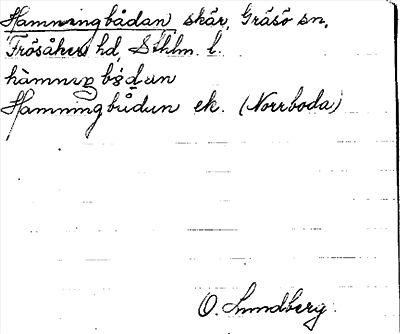 Hamningbådan skär, Gräsö sn,
Frösåkers hd, Sthlm. l.
hàmnıŋ bǫ́dan
Hamningbådun ek. (Norrboda)
O. Lundberg.